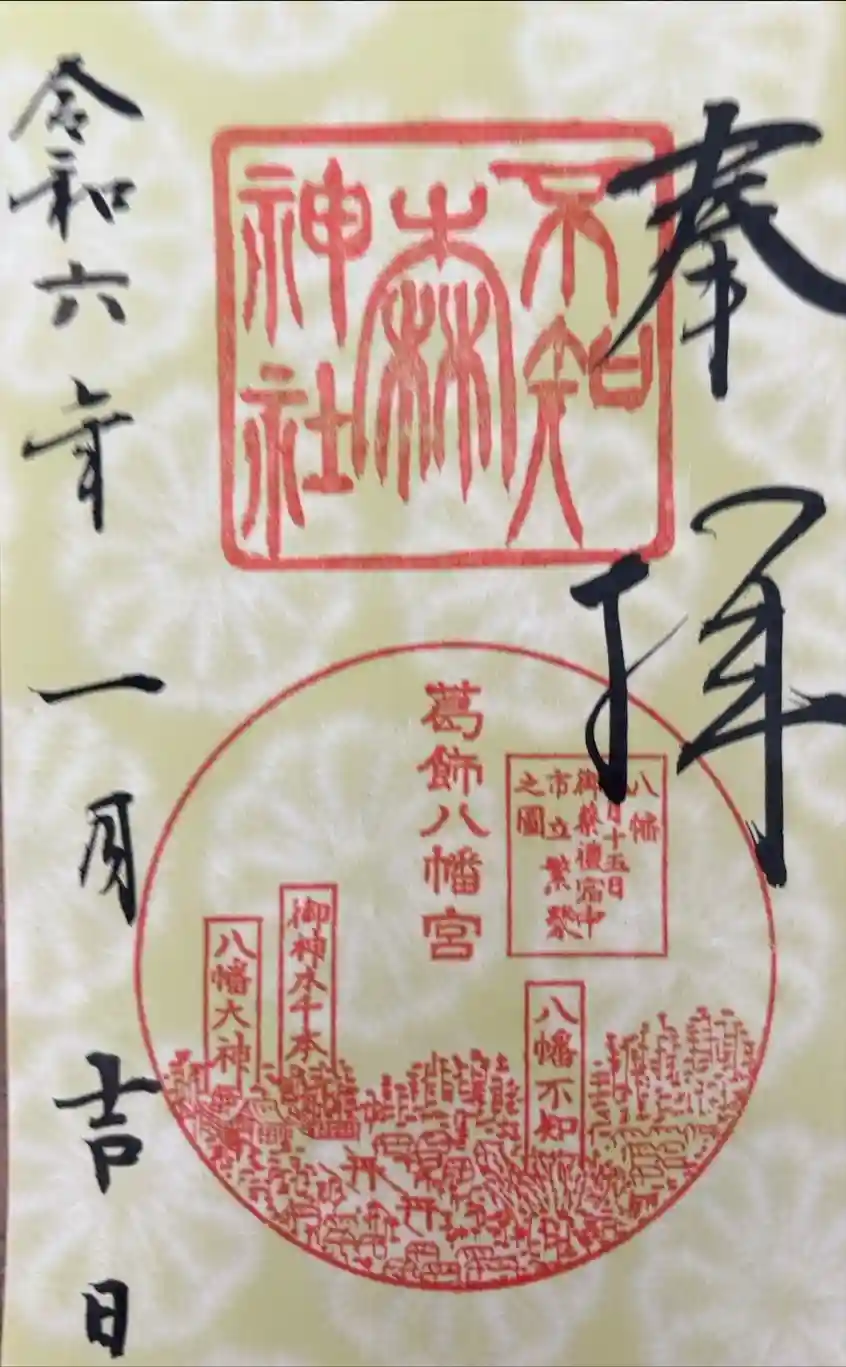 奉拝
不知
森
神社
葛飾八幡宮
八幡
月十五日
御祭禮宿中
市立繁榮
之圖
八幡不知
御神木千本
八幡大神
令和六年一月吉日